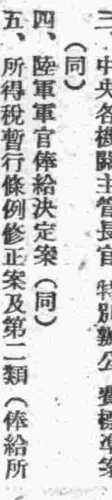 三、中央各機關主管長官特別辦公費標準案
（同）
四、陸軍軍官俸給決定案（同）
五、所得稅暫行條例修正案及第二類（俸給所